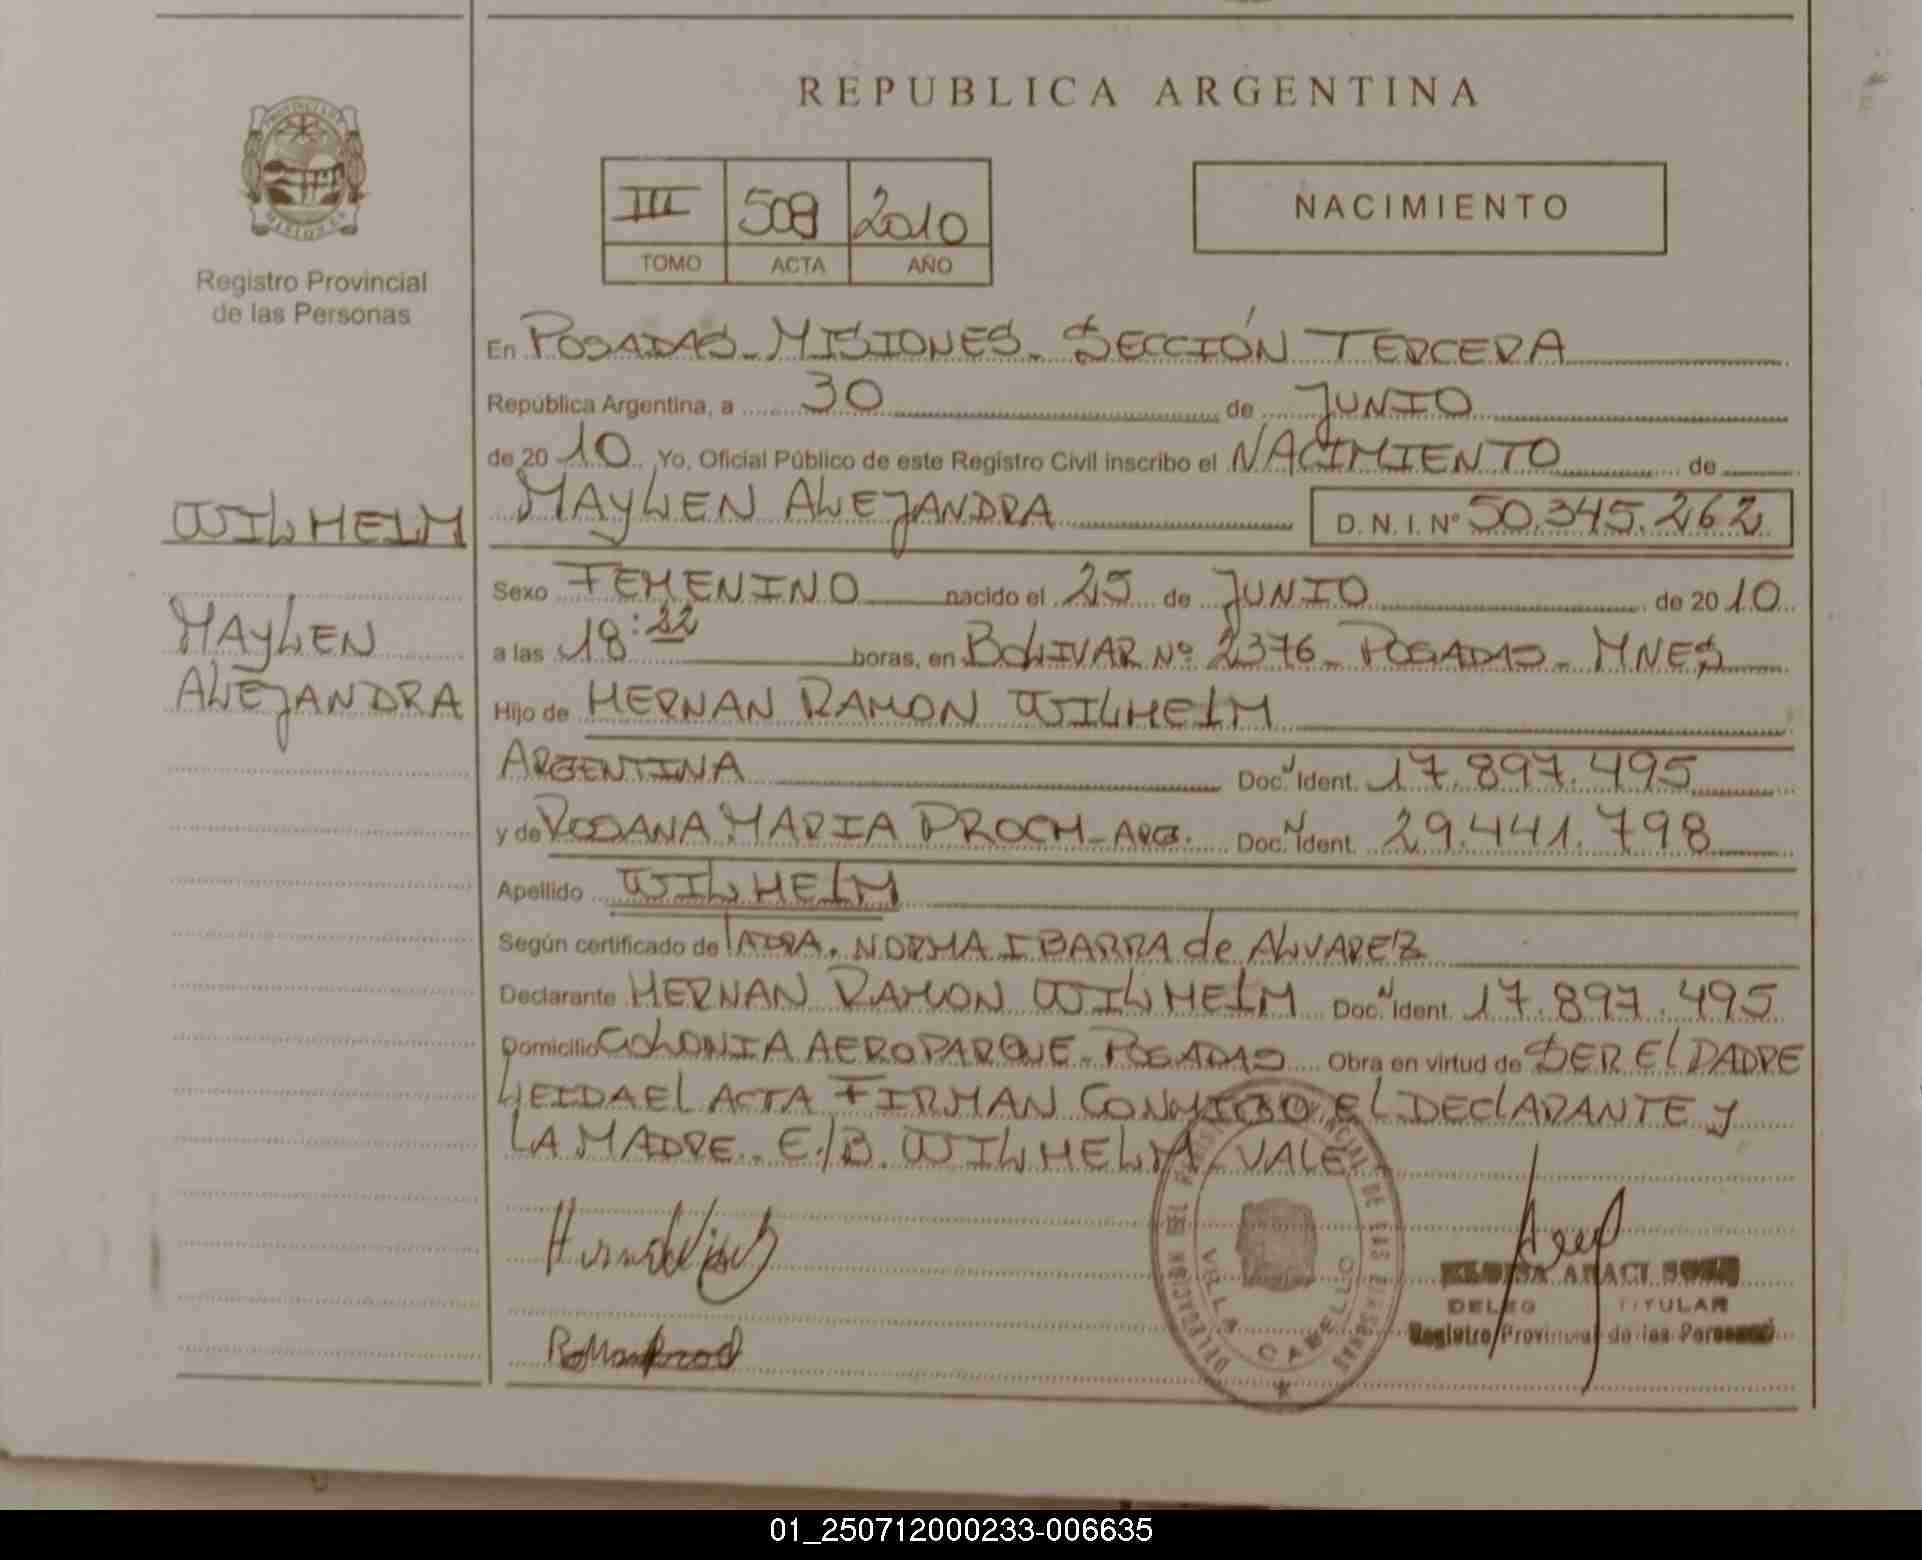 REPUBLICA ARGENTINA
PROVINCIA DE MISIONES
Registro Provincial
de las Personas
III 508 2010
TOMO ACTA AÑO
NACIMIENTO
En POSADAS - MISIONES - SECCIÓN TERCERA
República Argentina, a 30 de JUNIO
de 2010 Yo, Oficial Público de este Registro Civil inscribo el NACIMIENTO de
MAYLEN ALEJANDRA D. N. I. Nº 50.345.262
WILHELM
MAYLEN
ALEJANDRA
Sexo FEMENINO nacido el 25 de JUNIO de 2010
a las 18:22 horas, en BOLIVAR Nº 2376 - POSADAS - MNES
Hijo de HERNAN RAMON WILHELM
ARGENTINA Doc. Ident. 17.897.495
y de ROSANA MARIA PROCH - ARG. Doc. Ident. 29.441.798
Apellido WILHELM
Según certificado de NORMA IBARRA de ALVAREZ
Declarante HERNAN RAMON WILHELM Doc. Ident. 17.897.495
Domicilio COLONIA AEROPARQUE - POSADAS Obra en virtud de SER El PADRE
LEIDA El ACTA FIRMAN CONMIGO El DEClARANTE y
LA MADRE. E/B. WILHELM - VALE
DELEGACION DEL REGISTRO PROVINCIAL DE LAS PERSONAS
VILLA CABELLO
ARACI
DELEG TITULAR
Registro Provincial de las Personas
01_250712000233-006635